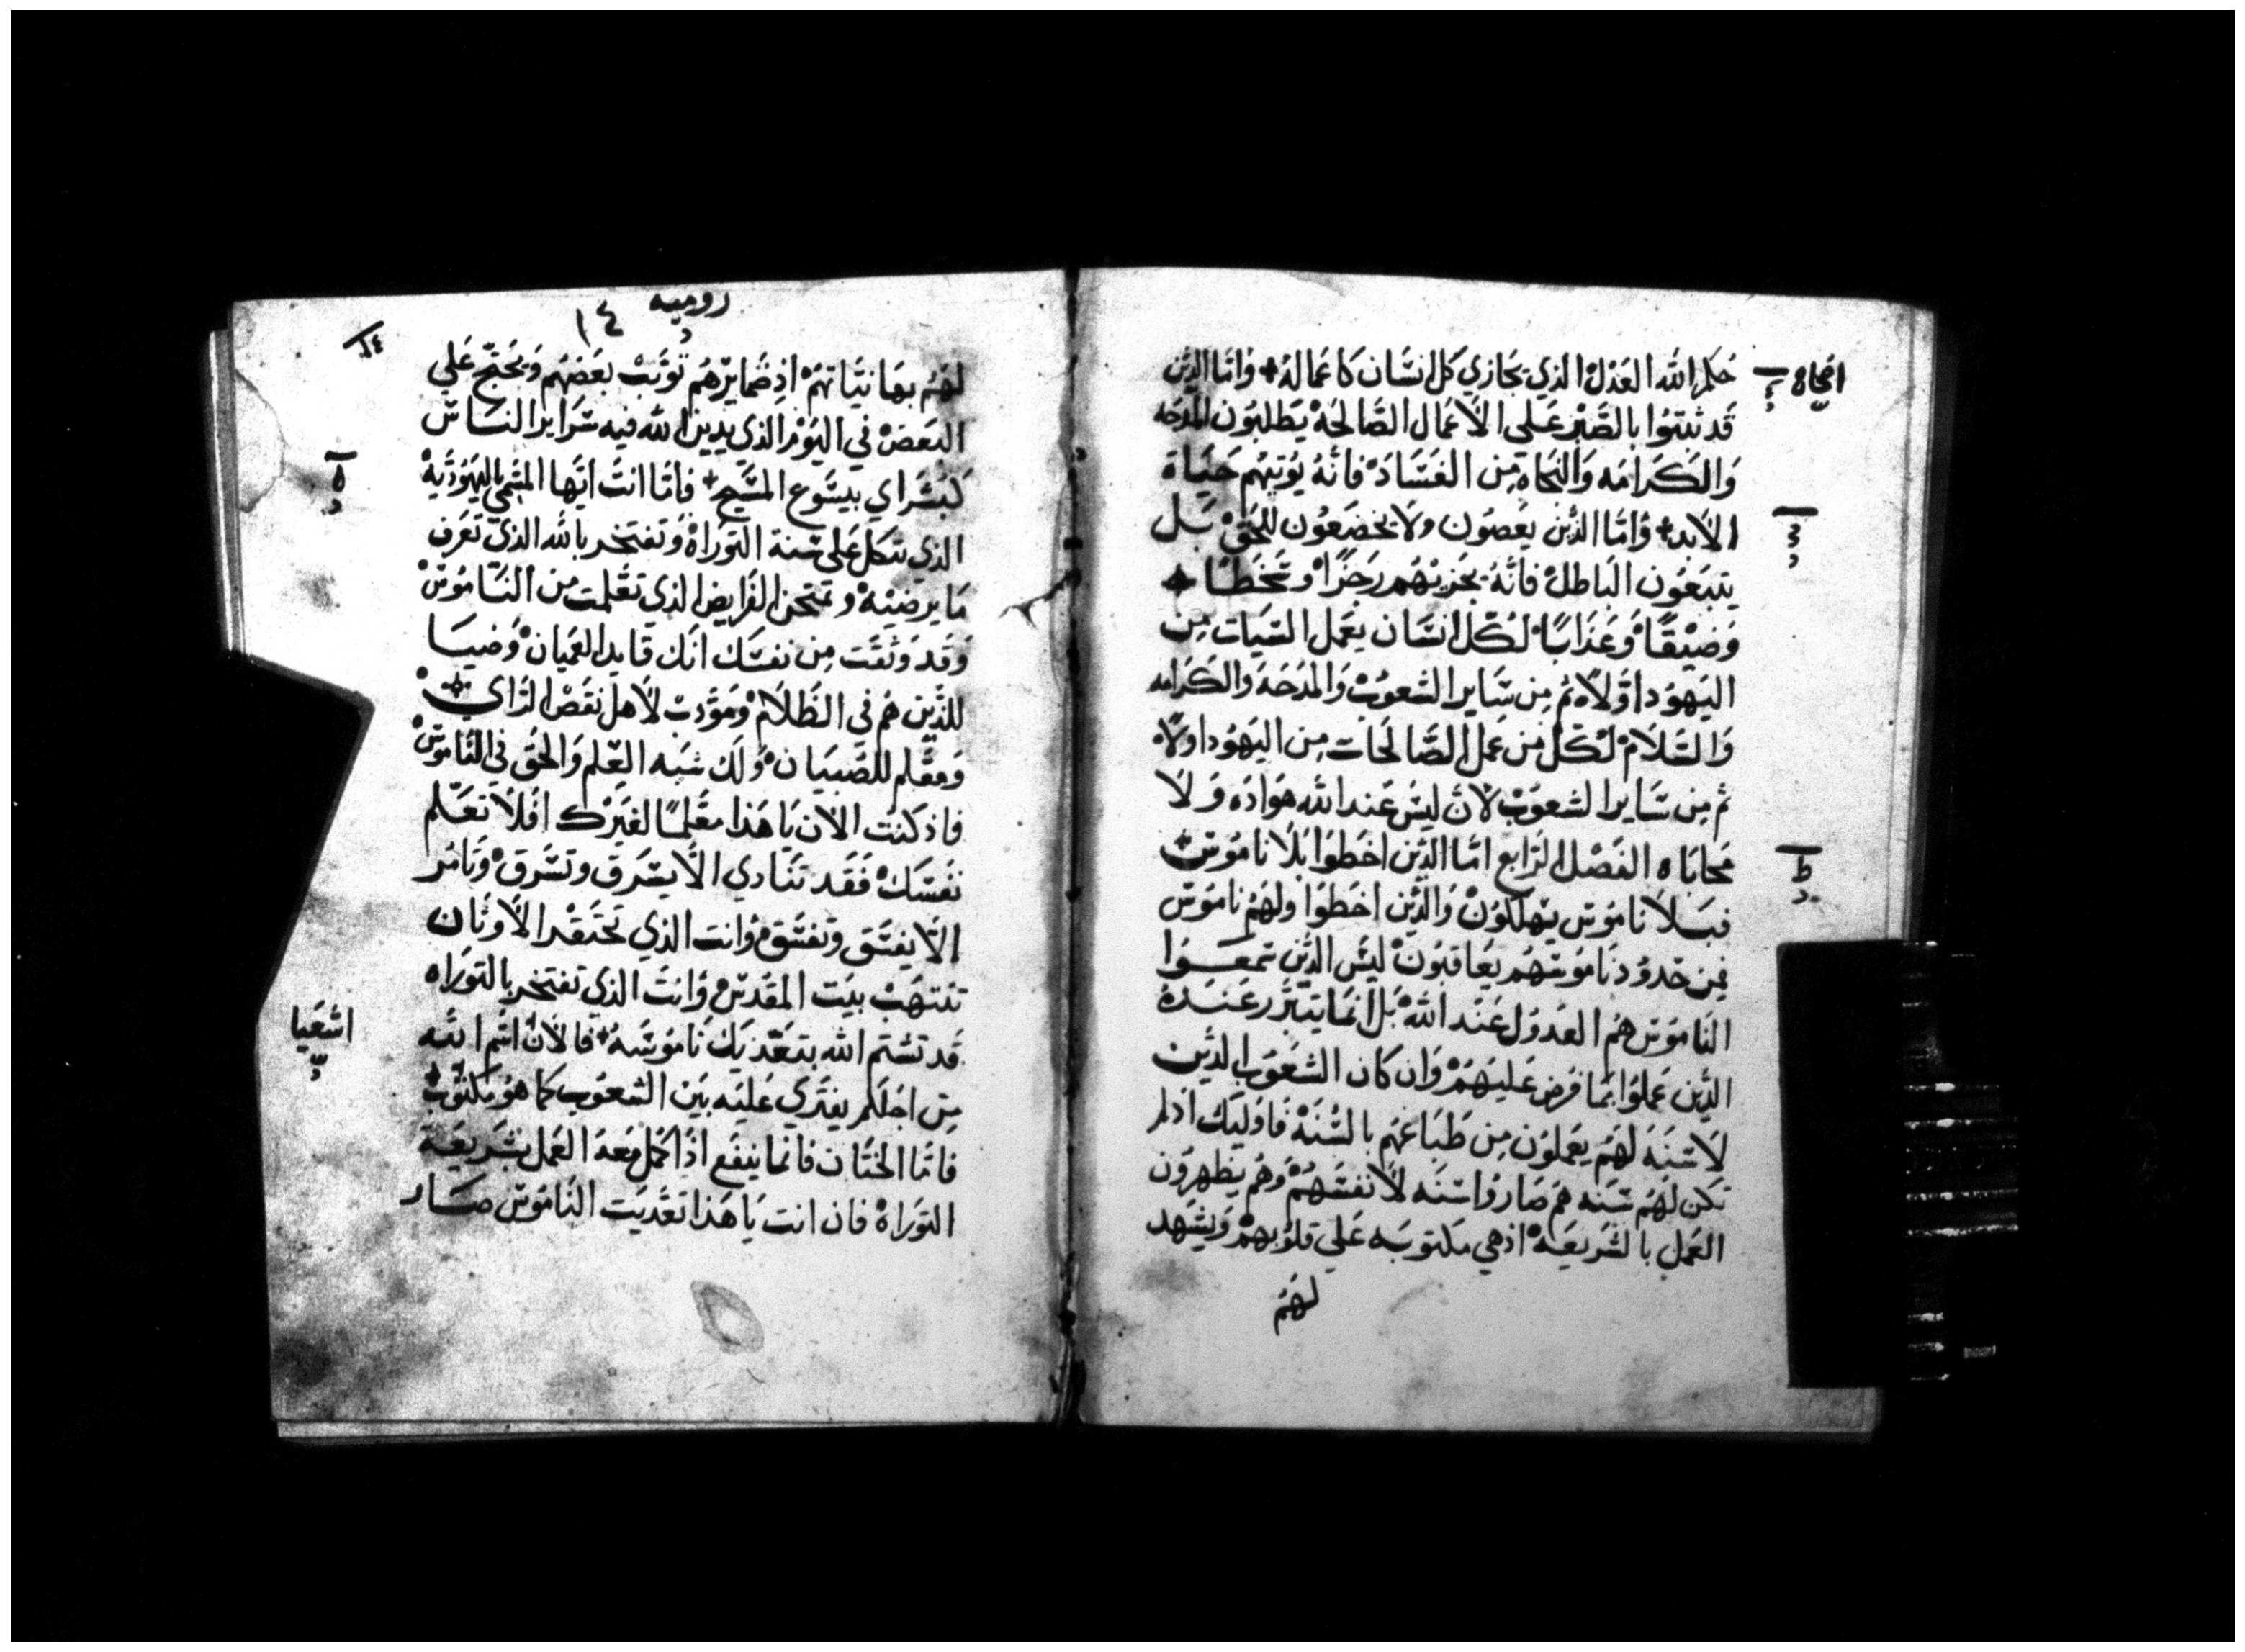 حكم الله العدل الذي يجازي كل انسان كاعماله واما الذين
قد ثبتوا بالصبر علي الاعمال الصالحة يطلبون المدحه
والكرامه والنجاه من الفساد فانه يوتيهم حياة
الابد واما الذين يعصون ولا يخضعون للحق بل
يتبعون الباطل فانه يجزيهم رجزا وسخطا
وضيقا وعذابا لكل انسان يعمل السيات من
اليهود اولا ثم من ساير الشعوب والمدحة والكرامه
والسلام لكل من عمل الصالحات من اليهود اولا
ثم من ساير الشعوب لان ليس عند الله هواده ولا
محاباه الفصل الرابع اما الذين اخطوا بلا ناموس
فبلا ناموس يهلكون والذين اخطوا ولهم ناموس
فمن حدود ناموسهم يعاقبون ليس الذين سمعوا
الناموس هم العدول عند الله بل انما يتبرر عنده
الذين عملوا بما فرض عليهم وان كان الشعوب الذين
لا سنة لهم يعملون من طباعهم بالسنة فاوليك اذ لم
تكن لهم سنه هم صاروا سنه لانفسهم وهم يظهرون
العمل بالشريعه اذ هي مكتوبه علي قلوبهم ويشهد
لهم
روميه
١٤
لهم بها نياتهم اذ ضمايرهم تونب بعضهم ويحتج علي
البعض في اليوم الذي يدين الله فيه سراير الناس
كبشراي بيسوع المسيح فاما انت ايها المسمي باليهودية
الذي تتكل علي سنة التوراة وتفتخر بالله الذي تعرف
ما يرضيه وتمتحن الفرايض الذي تعلمت من الناموس
وقد وثقت من نفسك انك قايد العميان وضيا
للذين هم في الظلام ومودب لاهل نقص الراي
ومعلم للصبيان ولك شبه العلم والحق في الناموس
فاذ كنت الان يا هذا معلما لغيرك افلا تعلم
نفسك فقد تنادي الا يسرق وتسرق وتامر
الا يفسق وتفسق وانت الذي تحتقر الاوثان
تنتهب بيت المقدس وانت الذي تفتخر بالتوراه
قد تشتم الله بتعديك ناموسه فالان اسم الله
من اجلكم يفتري عليه بين الشعوب كما هو مكتوب
فاما الختان فانما ينفع اذا كمل معه العمل بشريعة
التوراة فان انت يا هذا تعديت الناموس صار
اشعيا